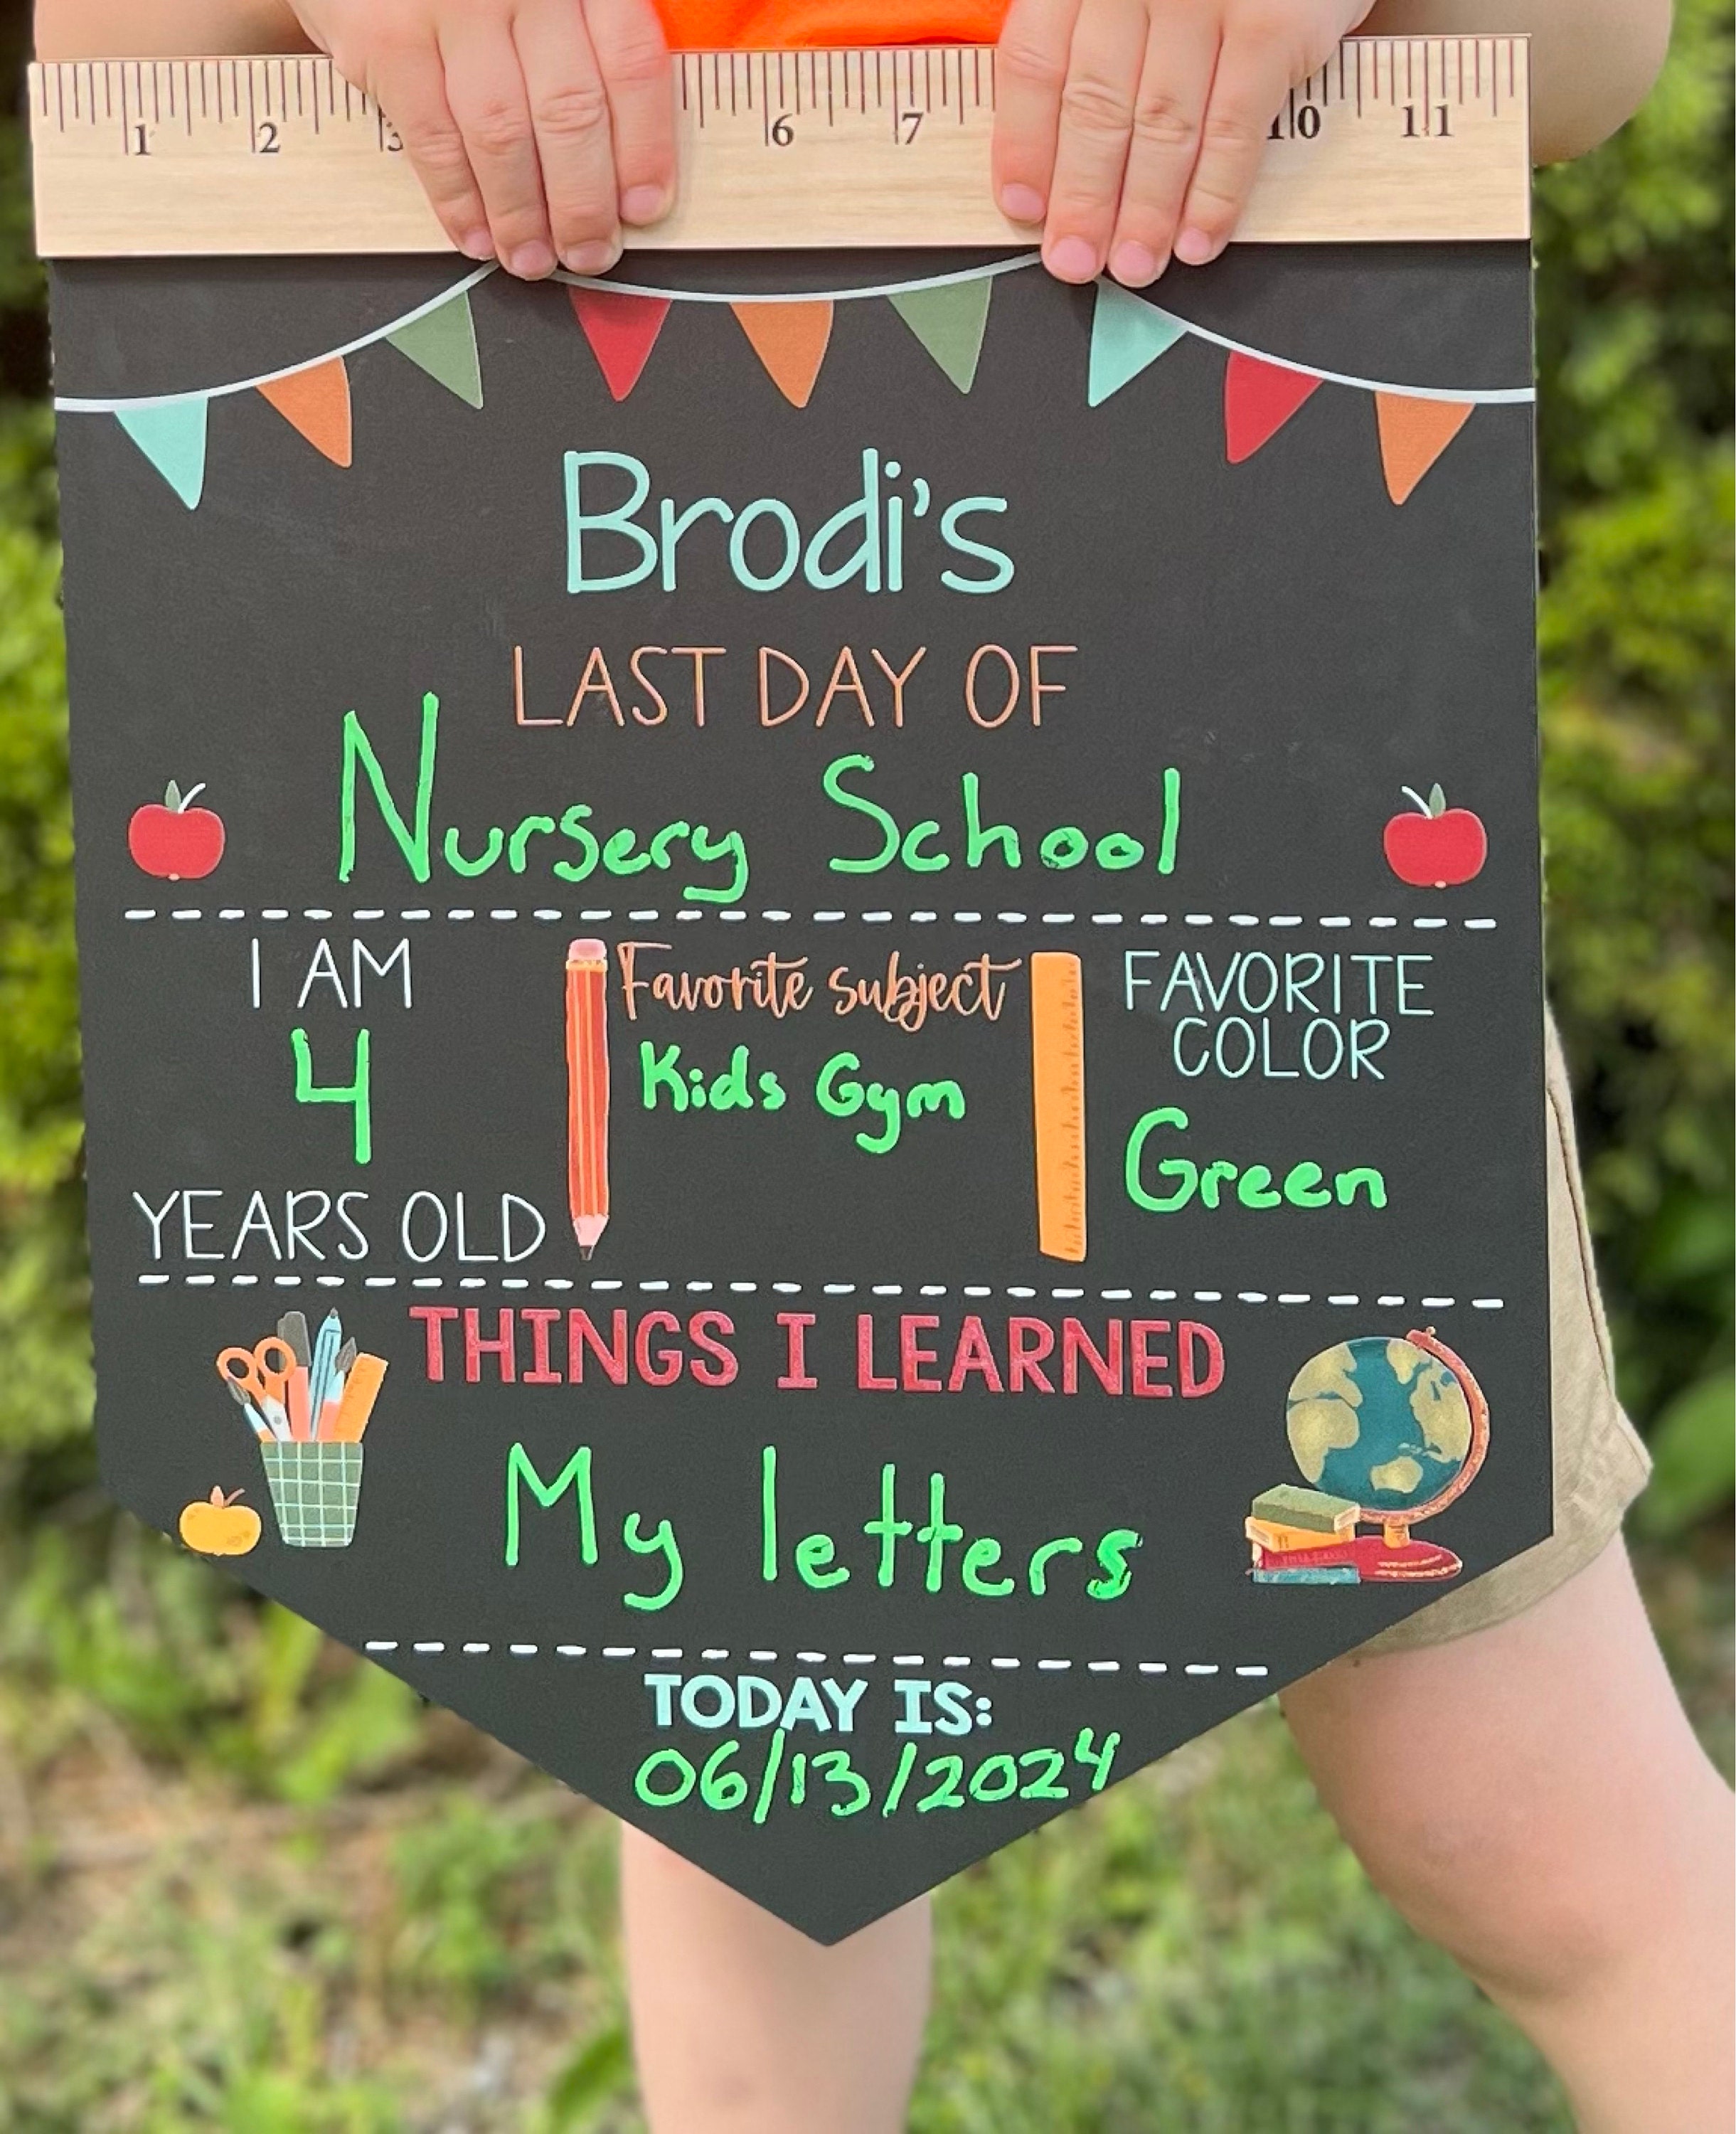 1 2 3 6 7 10 11
Brodi's
LAST DAY OF
Nursery School
I AM
4
YEARS OLD
Favorite subject
Kids Gym
FAVORITE
COLOR
Green
THINGS I LEARNED
My letters
TODAY IS:
06/13/2024